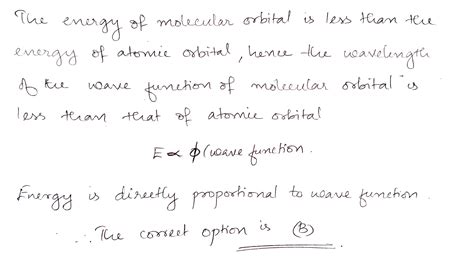 The energy of molecular orbital is less than the
energy of atomic orbital, hence the wavelength
of the wave function of molecular orbital is
less than that of atomic orbital
E ∝ ϕ (wave function.
Energy is directly proportional to wave function.
∴ The correct option is (B).